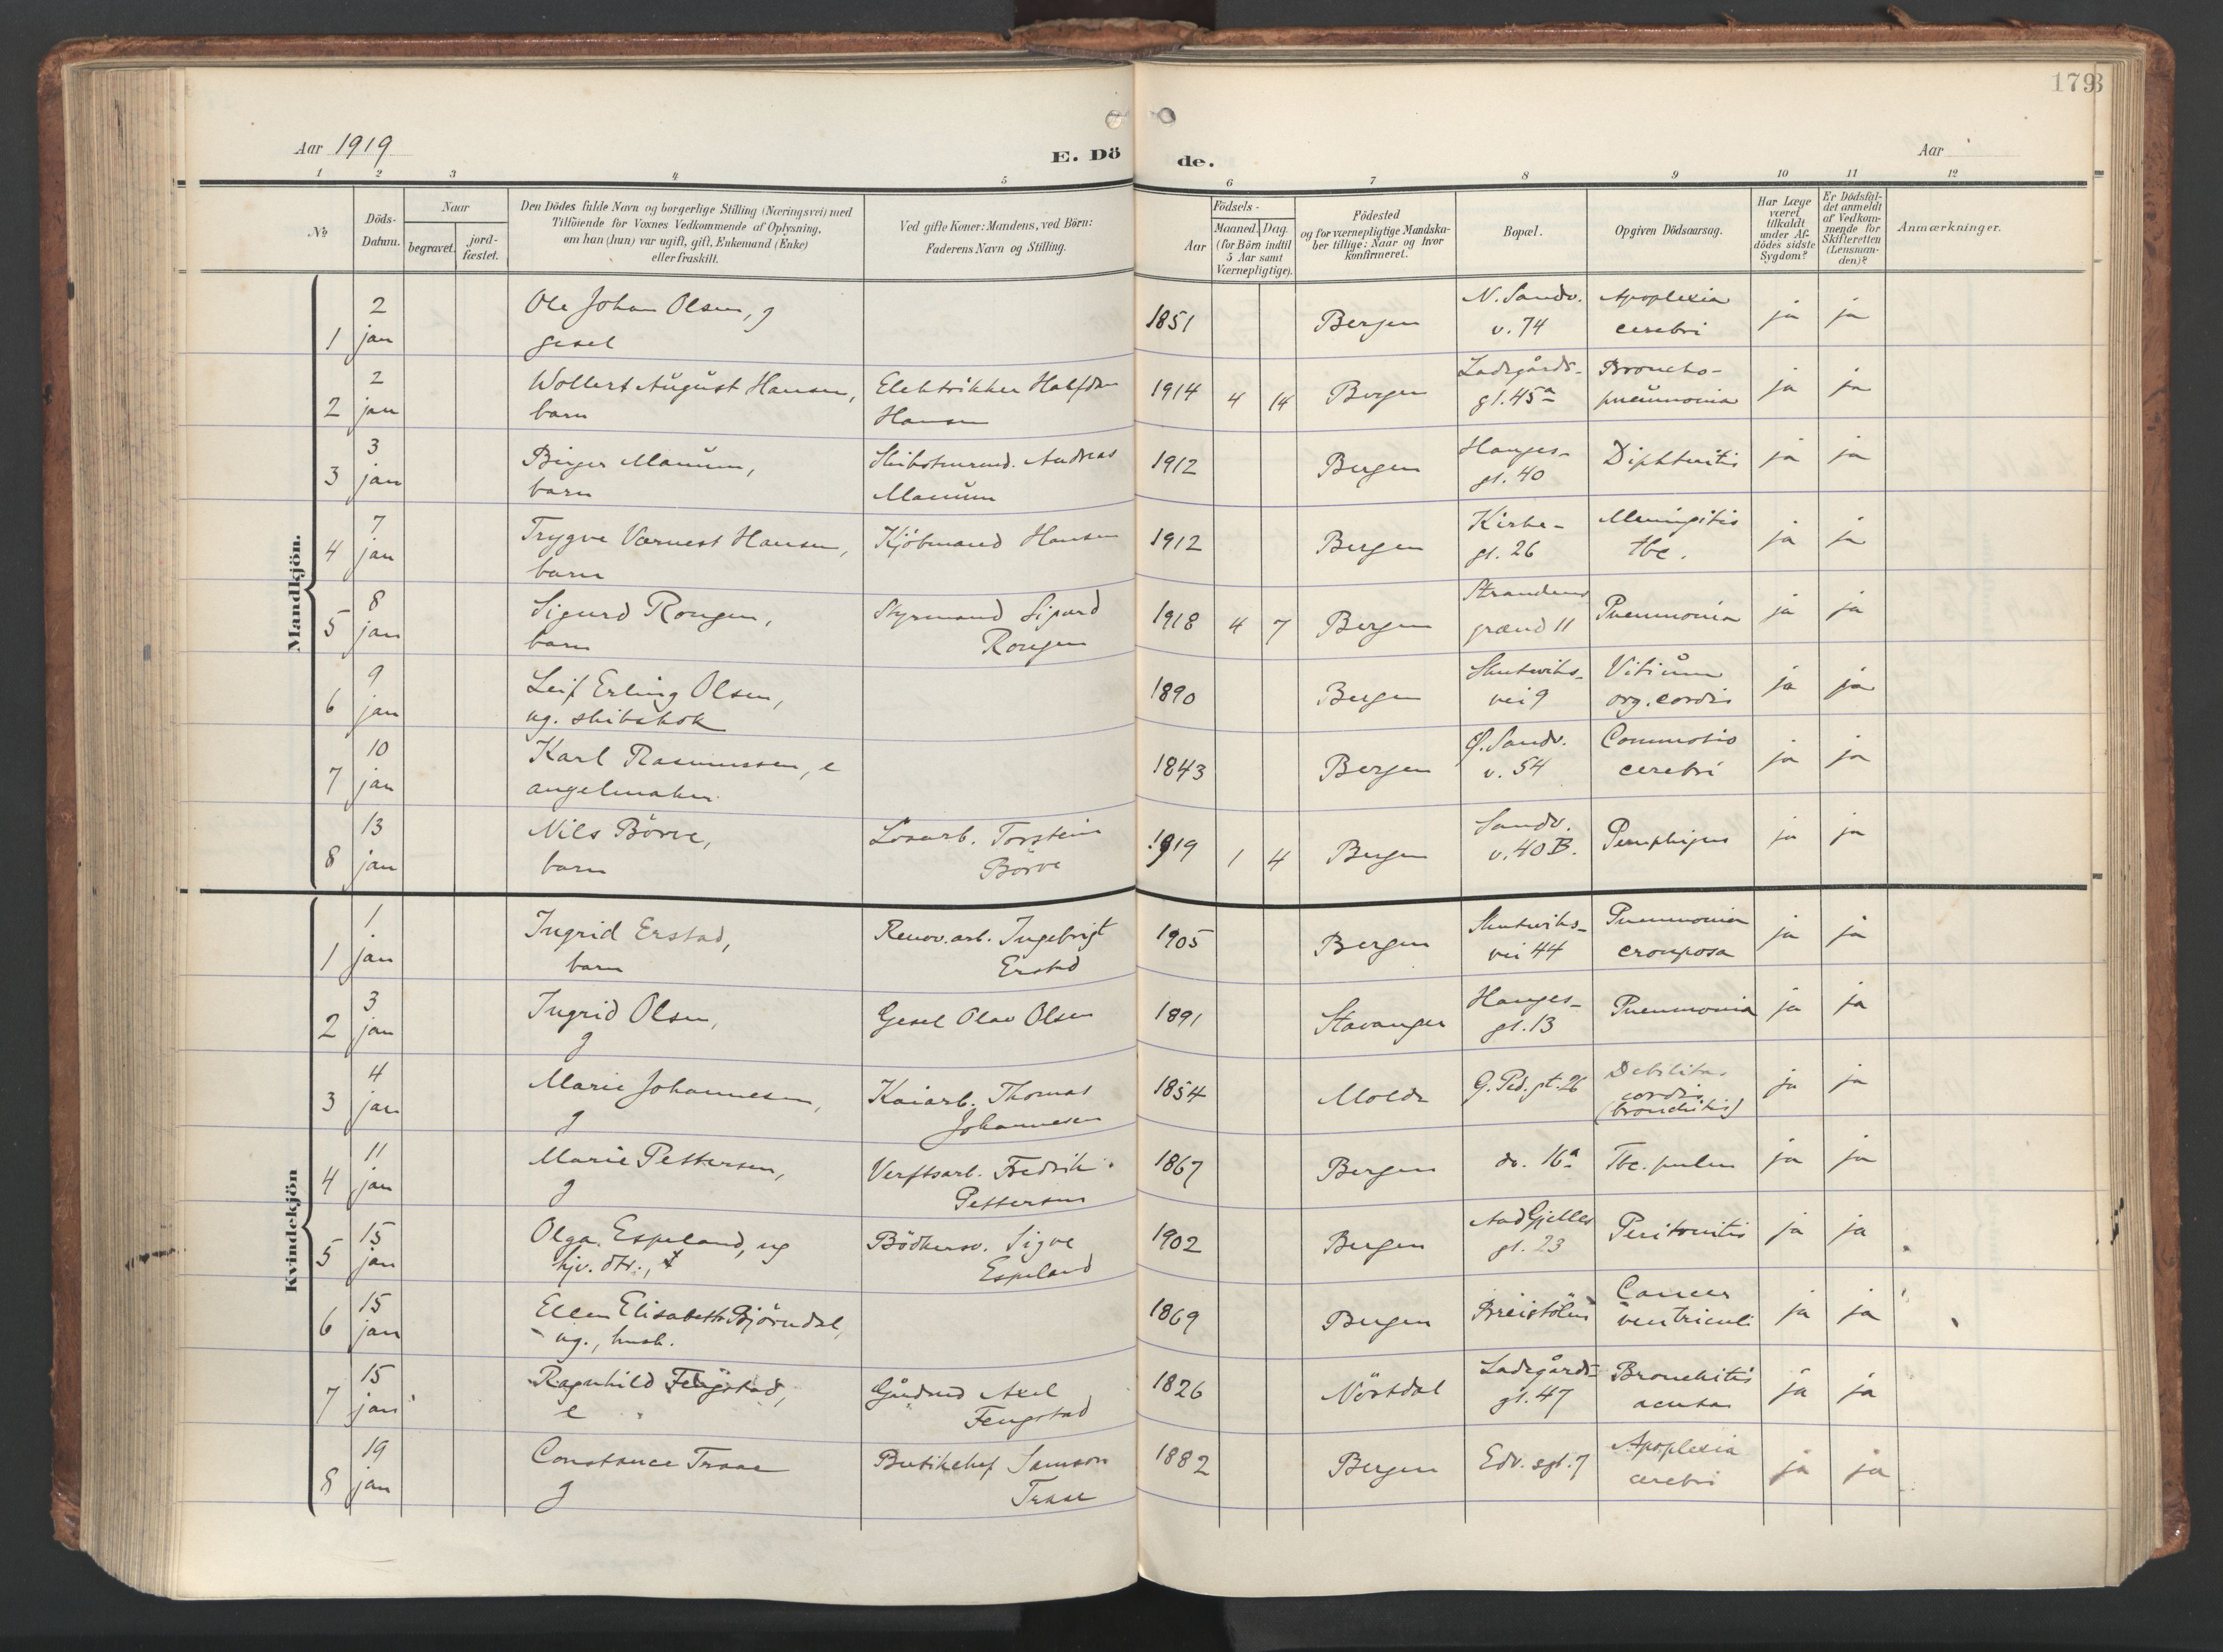 179
Aar 1919
E. Dö de.
Aar
1 2 3 4 5 6 7 8 9 10 11 12
No
Döds-Datum.
Naar
begravet.
jord-fæstet.
Den Dödes fulde Navn og borgerlige Stilling (Næringsvei) med
Tilföiende for Voxnes Vedkommende af Oplysning,
om han (hun) var ugift, gift, Enkemand (Enke)
eller fraskilt.
Ved gifte Koner: Mandens, ved Börn:
Faderens Navn og Stilling.
Födsels-
Aar
Maaned. Dag.
(for Börn indtil
5 Aar samt
Værnepligtige).
Födested
og for værnepligtige Mandska-
ber tillige: Naar og hvor
konfirmeret.
Bopæl.
Opgiven Dödsaarsag.
Har Læge
været
tilkaldt
under Af-
dödes sidste
Sygdom?
Er Dödsfal-
det anmeldt
af Vedkom-
mende for
Skifteretten
(Lensman-
den)?
Anmærkninger.
Mandkjön.
1 2 jan Ole Johan Olsen, g 1851 Bergen N. Sandv. Apoplexia ja ja
gesel v. 74 cerebri
2 2 jan Wollert August Hansen, Elektrikker Halfdan 1914 4 14 Bergen Ladegårds- Broncho- ja ja
barn Hansen gt. 45a pneumonia
3 3 jan Birger Manum, Andreas 1912 Bergen Hauges- Diphteritis ja ja
barn Manum gt. 40
4 7 jan Trygve Værnest Hansen, Kjöbmand Hansen 1912 Bergen Kirke- Meningitis ja ja
barn gt. 26 tbc.
5 8 jan Sigurd Rongen, Styrmand Sigurd 1918 4 7 Bergen Strandens Pneumonia ja ja
barn Rongen grænd 11
6 9 jan Leif Erling Olsen, 1890 Bergen Skuteviks- Vitium ja ja
ug. skibskok vei 9 org. cordis
7 10 jan Karl Rasmussen, e 1843 Bergen Ø. Sandv. Commotio ja ja
angelmaker v. 54 cerebri
8 13 jan Nils Börve, Losarb. Torstein 1919 1 4 Bergen Sandv. Pemphigus ja ja
barn Börve v. 40 B.
Kvindekjön
1 1 jan Ingrid Erstad, Renov. arb. Ingebrigt 1905 Bergen Skuteviks- Pneumonia ja ja
barn Erstad vei 44 crouposa
2 3 jan Ingrid Olsen, Gesel Olav Olsen 1891 Stavanger Hauges- Pneumonia ja ja
g gt. 13
3 4 jan Marie Johannesen, Kaiarb. Thomas 1854 Molde G. Ped. gt. 26 Debilitas ja ja
g Johannesen cordis
(bronchitis)
4 11 jan Marie Pettersen, Verftsarb. Fredrik 1867 Bergen do. 16a Tbc. pulm ja ja
g Pettersen
5 15 jan Olga Espeland, ug Bödkersv. Sigve 1902 Bergen Aad Gjelles Peritonitis ja ja
hjv. dtr., Espeland gt. 23
6 15 jan Ellen Elisabeth Björndal, 1869 Bergen Breistölen Cancer ja ja
ug., hush. ventriculi
7 15 jan Ragnhild Fengstad, Gårdmd Axel 1826 Nörtdal Ladegårds- Bronchitis ja ja
e Fengstad gt. 47 acuta
8 19 jan Constance Traae Butikchef Samson 1882 Bergen Edv. sgt. 7 Apoplexia ja ja
g Traae cerebri